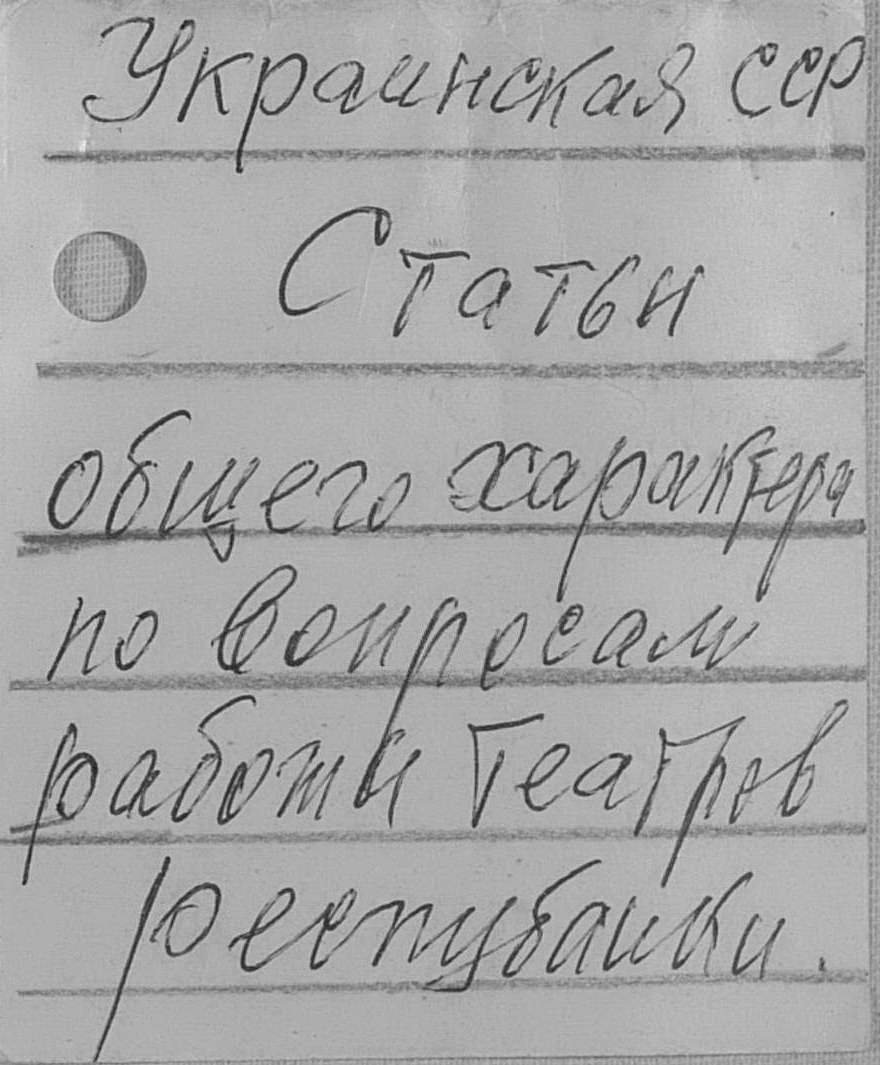 Украинская ССР
Статьи
общего характера
по вопросам
работы театров
республики.